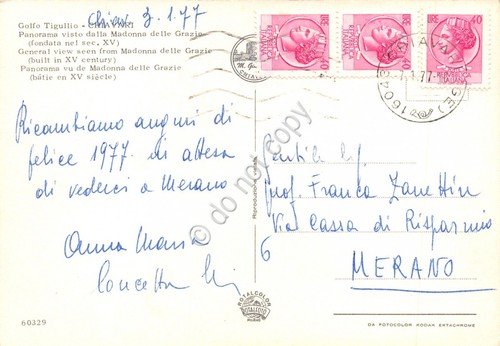 Chiavari 3.1.77
Golfo Tigullio - CHIAVARI
Panorama visto dalla Madonna delle Grazie
(fondata nel sec. XV)
General view seen from Madonna delle Grazie
(built in XV century)
Panorama vu de Madonna delle Grazie
(bâtie en XV siècle)
Ricambiamo auguri di
felice 1977 in attesa
di vederci a Merano
Anna Maria
Concetta
Gentile
Prof. Franca Zanettin
Via Cassa di Risparmio
6
MERANO
60329
ROTALCOLOR
ROTALFOTO
MILANO
DA FOTOCOLOR KODAK EKTACHROME
LIRE 40
40
40
do not copy